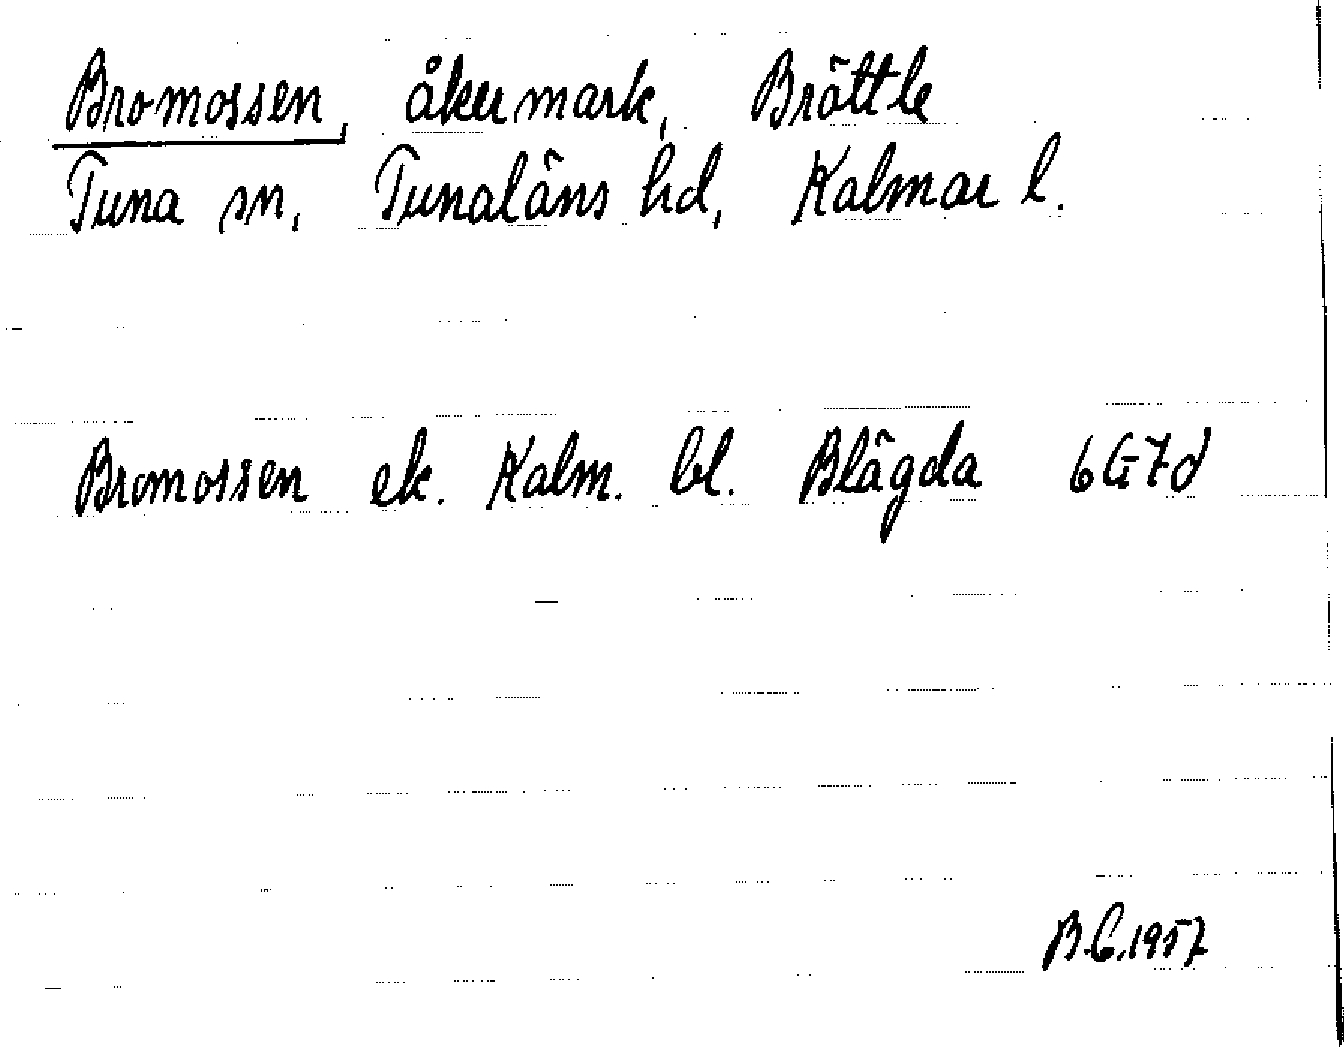 Bromossen, åkermark, Bröttle
Tuna sn, Tunaläns hd, Kalmar l.
Bromossen ek. Kalm. bl. Blägda 6G7d
B.C.1957